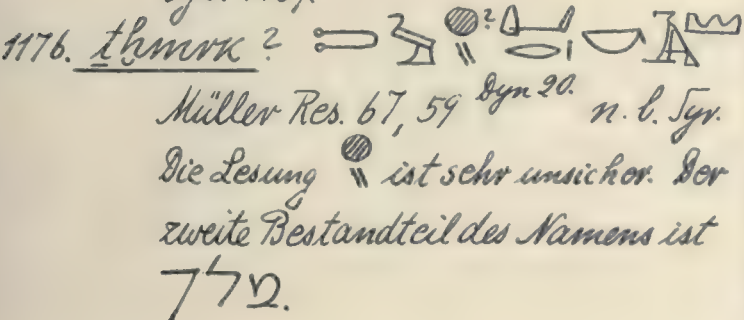 1176. ṯḫmrk ? ?
Müller Res. 67, 59 Dyn 20. n. l. Syr.
Die Lesung ist sehr unsicher. Der
zweite Bestandteil des Namens ist
מלך.